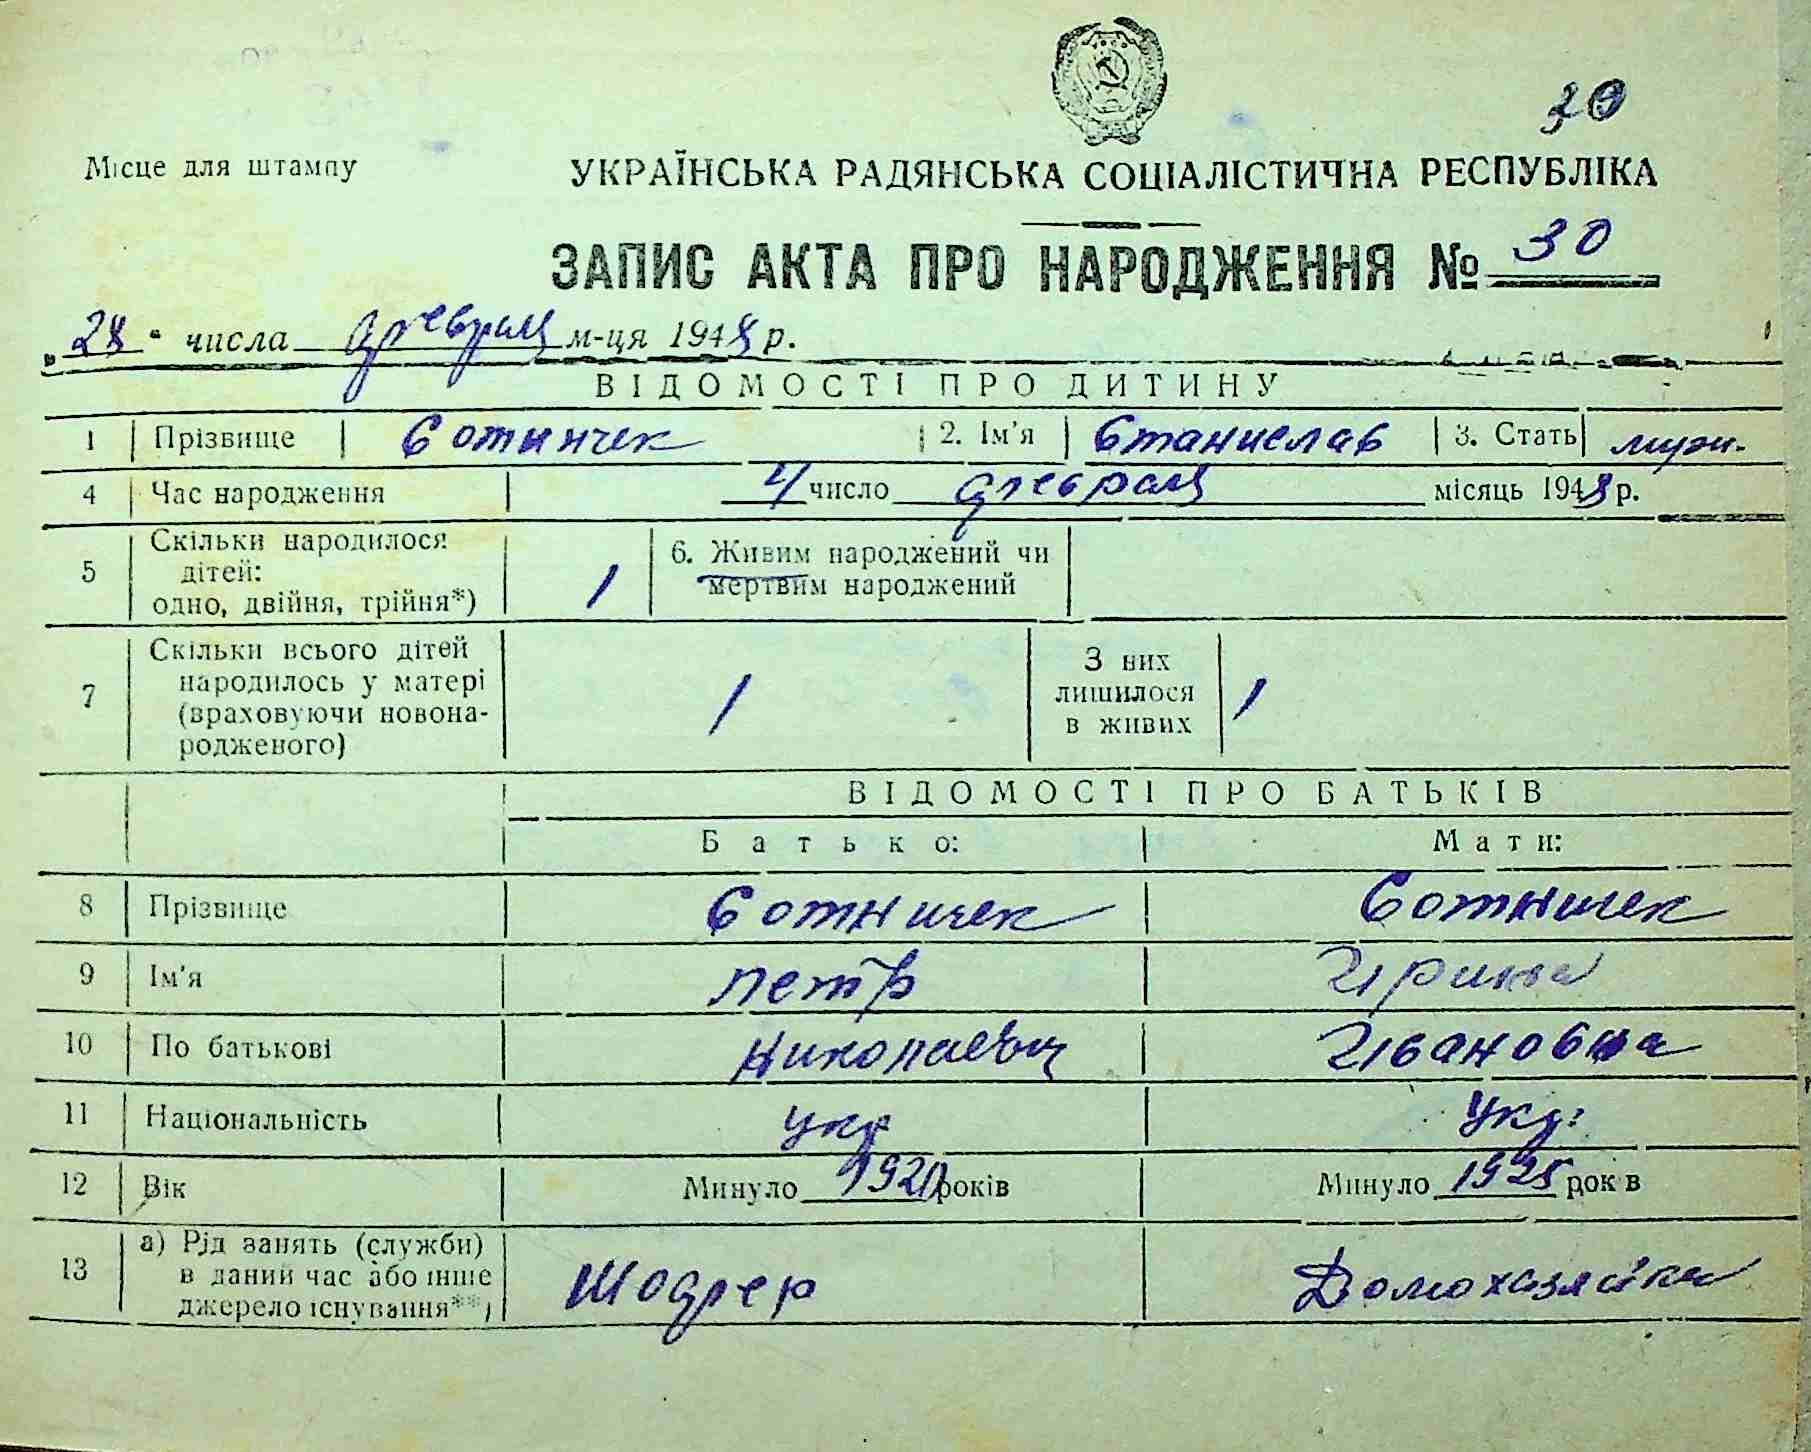 30
Місце для штампу
УКРАЇНСЬКА РАДЯНСЬКА СОЦІАЛІСТИЧНА РЕСПУБЛІКА
ЗАПИС АКТА ПРО НАРОДЖЕННЯ № 30
„28" числа февраля м-ця 1948 р.
ВІДОМОСТІ ПРО ДИТИНУ
1 Прізвище Сотничек 2. Ім'я Станислав 3. Стать муж.
4 Час народження 4 число февраля місяць 1948 р.
5 Скільки народилося дітей: одно, двійня, трійня*) 1 6. Живим народжений чи мертвим народжений
7 Скільки всього дітей народилось у матері (враховуючи новонародженого) 1 З них лишилося в живих 1
ВІДОМОСТІ ПРО БАТЬКІВ
Батько: Мати:
8 Прізвище Сотничек Сотничек
9 Ім'я Петр Ирина
10 По батькові Николаевич Ивановна
11 Національність укр Укр.
12 Вік Минуло років Минуло 1925 років
13 а) Рід занять (служби) в даний час або інше джерело існування**) Шофер Домохазяйка